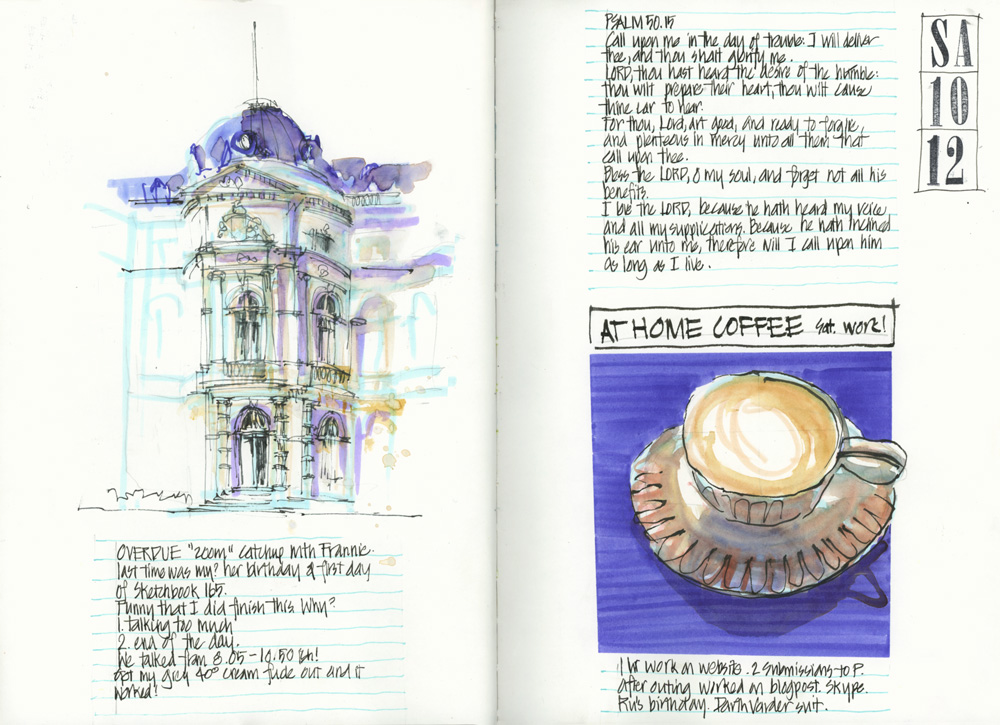 OVERDUE "zoom" catchup with Frannie.
last time was my? her birthday & first day
of Sketchbook 165.
Funny that I did finish this. Why?
1. talking too much
2. end of the day.
We talked from 8.05-10.50
Got my grey 40° cream fude out and it
worked!
PSALM 50.15
Call upon me in the day of trouble: I will deliver
thee, and thou shalt glorify me.
LORD, thou hast heard the desire of the humble:
thou wilt prepare their heart, thou wilt cause
thine ear to hear.
For thou, Lord, art good, and ready to forgive,
and plenteous in mercy unto all them that
call upon thee.
Bless the LORD, O my soul, and forget not all his
benefits.
I love the LORD, because he hath heard my voice
and all my supplications. Because he hath inclined
his ear unto me, therefore will I call upon him
as long as I live.
SA
10
12
AT HOME COFFEE Sat. work!
1 hr work on website. 2 Submissions to P.
After outing worked on blogpost. Skype.
Ru's birthday. DarthVarder suit.